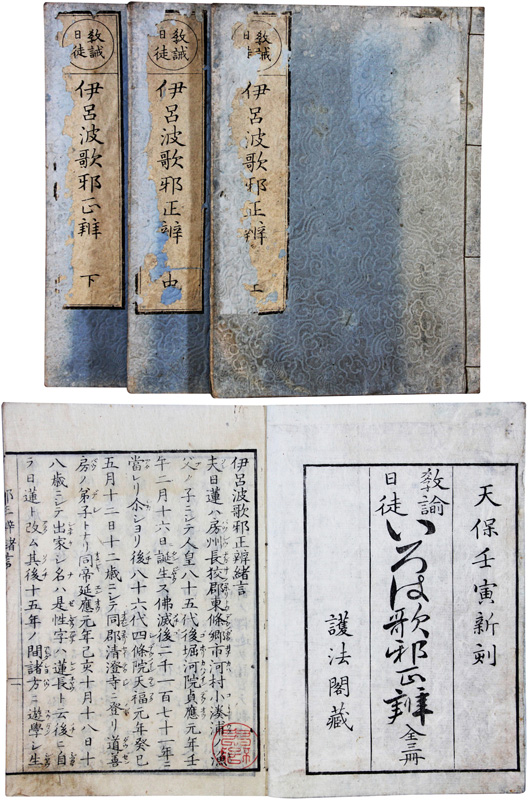 教誡
日徒
伊呂波歌邪正辨 上
教誡
日徒
伊呂波歌邪正辨 中
教誡
日徒
伊呂波歌邪正辨 下
天保壬寅新刻
教諭
日徒
いろは歌邪正辨
全三冊
護法閣藏
伊呂波歌邪正辨緒言
夫日蓮ハ房州長挍郡東條郷市河村小湊浦ノ漁
父ノ子ニシテ人皇八十五代後堀河院貞應元年壬
午二月十六日誕生ス佛滅後二千一百七十一年ニ
當レリ尒シヨリ後八十六代四條院天福元年癸巳
五月十二日十二歳ニシテ同郡清澄寺ニ登リ道善
房ノ弟子トナリ同帝延應元年己亥十月十八日十
八歳ニシテ出家シ名ハ是性字ハ蓮長ト云後ニ自
ラ日蓮ト改ム其後十五年ノ間諸方ニ遊學シ生
邪正辨緒言